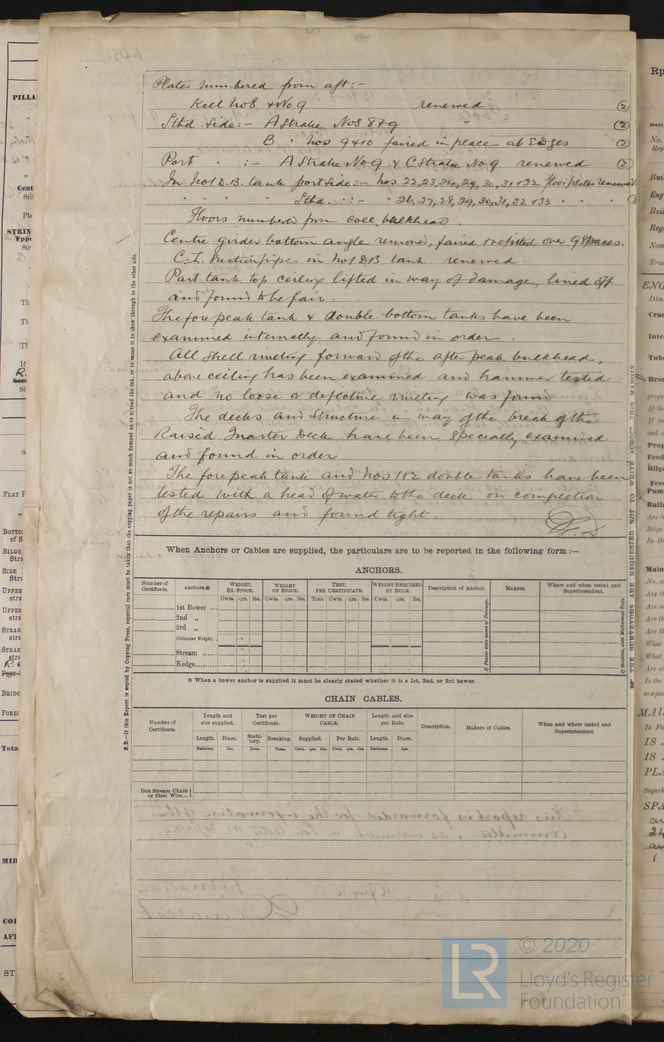 Plates numbered from aft :-
Keel No 8 & No 9 renewed (2)
Stbd Side :- A Strake Nos 8 & 9 " (2)
B " Nos 9 & 10 faired in place at Edges (2)
Port " :- A Strake No 9 & C Strake No 9 renewed (2)
In No 1 D.B. tank port side :- Nos 22, 23, 24, 29, 30, 31 & 32 floor plates renewed
" " " " Stbd " :- " 26, 27, 28, 29, 30, 31, 32 & 33 " " "
Floors numbered from coll. bulkhead.
Centre girder bottom angle removed, faired & refitted over 9 Spaces.
C.L. Suction pipe in No 1 D.B. tank renewed.
Part tank top ceiling lifted in way of damage, lined off
and found to be fair.
The fore peak tank & double bottom tanks have been
examined internally and found in order.
All Shell riveting forward of the after peak bulkhead,
above ceiling has been examined and hammer tested
and no loose or defective riveting was found
The decks and structure in way of the break of the
Raised Quarter Deck have been specially examined
and found in order
The fore peak tank and Nos 1 & 2 double tanks have been
tested with a head of water to the deck on completion
of the repairs and found tight.
When Anchors or Cables are supplied, the particulars are to be reported in the following form :—
ANCHORS.
Number of Certificate. Anchors.※ WEIGHT, EX. STOCK. WEIGHT OF STOCK. TEST, PER CERTIFICATE. WEIGHT REQUIRED BY RULE. Description of Anchor. Makers. Where and when tested and Superintendent.
Cwts. qrs. lbs. Cwts. qrs. lbs. Tons Cwts. qrs. lbs. Cwts. qrs. lbs.
1st Bower ...
2nd "
3rd "
Collective Weight.
Stream ......
Kedge........
※ When a bower anchor is supplied it must be clearly stated whether it is a 1st, 2nd, or 3rd bower.
CHAIN CABLES.
Number of Certificate. Length and size supplied. Test per Certificate. WEIGHT OF CHAIN CABLE. Length and size per Rule. Description. Makers of Cables. When and where tested and Superintendent.
Length. Diam. Statutory. Breaking. Supplied. Per Rule. Length. Diam.
Fathoms. Ins. Tons. Tons. Cwts. qrs. lbs. Cwts. qrs. lbs. Fathoms. Ins.
Iron Stream Chain or Steel Wire
N.B.—If this Report is copied by Copying Press, especial care must be taken that the copying paper is not so much damped as to spread the ink, or to cause it to show through to the other side.
THE SURVEYORS ARE REQUESTED NOT TO WRITE ACROSS THIS MARGIN
LR
© 2020
Lloyd's Register
Foundation